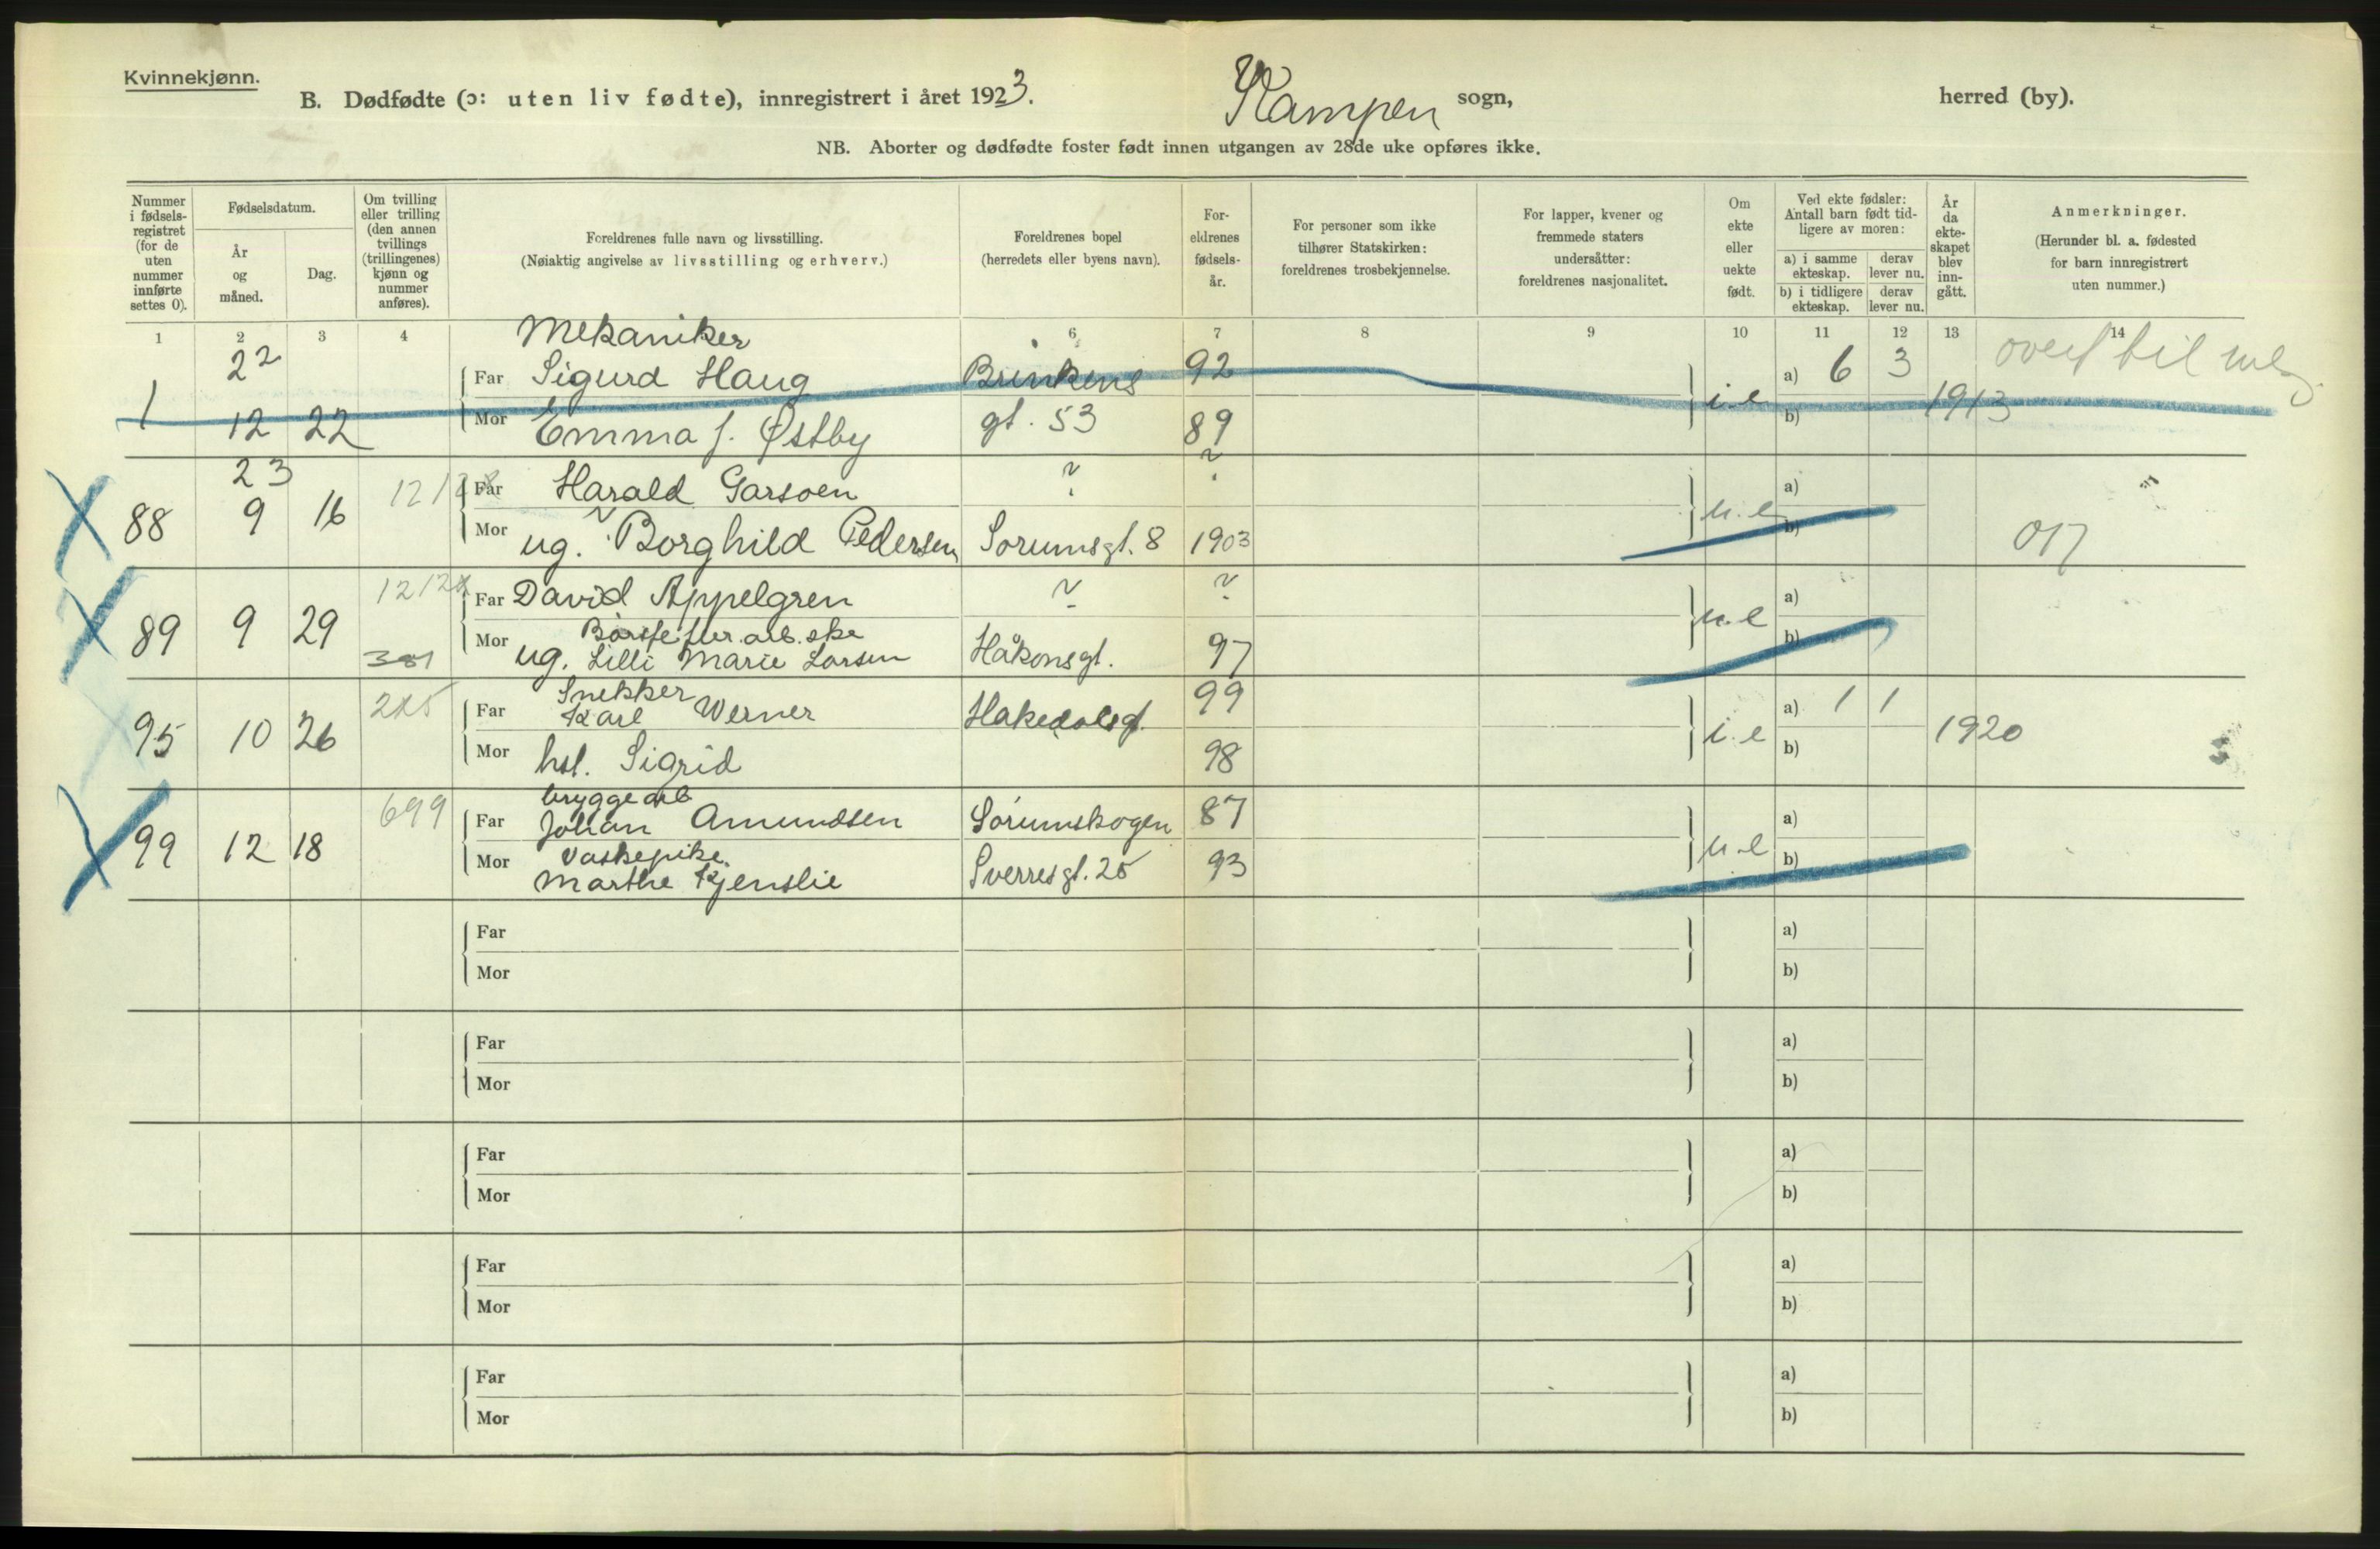 Kvinnekjønn.
B. Dødfødte (ɔ: uten liv fødte), innregistrert i året 1923. Kampen sogn, herred (by).
NB. Aborter og dødfødte foster født innen utgangen av 28de uke opføres ikke.
Nummer i fødselsregistret (for de uten nummer innførte settes 0).
Fødselsdatum.
År og måned.
Dag.
Om tvilling eller trilling (den annen tvillings (trillingenes) kjønn og nummer anføres).
Foreldrenes fulle navn og livsstilling.
(Nøiaktig angivelse av livsstilling og erhverv.)
Foreldrenes bopel
(herredets eller byens navn).
Foreldrenes fødselsår.
For personer som ikke tilhører Statskirken: foreldrenes trosbekjennelse.
For lapper, kvener og fremmede staters undersåtter: foreldrenes nasjonalitet.
Om ekte eller uekte født.
Ved ekte fødsler: Antall barn født tidligere av moren:
a) i samme ekteskap. derav lever nu.
b) i tidligere ekteskap. derav lever nu.
År da ekteskapet blev inngått.
Anmerkninger.
(Herunder bl. a. fødested for barn innregistrert uten nummer.)
1 2 3 4 6 7 8 9 10 11 12 13 14
Mekaniker
22 Far Sigurd Haug 92 a) 6 3 til
1 12 22 Mor Emma J. Østby gt. 53 89 i.e b) 1913
23 12/28 Far Harald Garsoen ? ? a)
88 9 16 Mor ug. Borghild Pedersen Sorumsgt. 8 1903 u.e b)
12/28 Far David Appelgren ? ? a)
89 9 29 381 Mor ug. Lilli Marie Larsen Håkonsgt. 97 u.e b)
Snekker
225 Far Karl Werner Hakedalsgt. 99 a) 1 1
95 10 26 Mor hst. Sigrid 98 i.e b) 1920
bryggearb
699 Far Johan Amundsen Sorumskogen 87 a)
Vaskepike
99 12 18 Mor Marthe Kjenslie Sverresgt. 25 93 u.e b)
Far a)
Mor b)
Far a)
Mor b)
Far a)
Mor b)
Far a)
Mor b)
Far a)
Mor b)